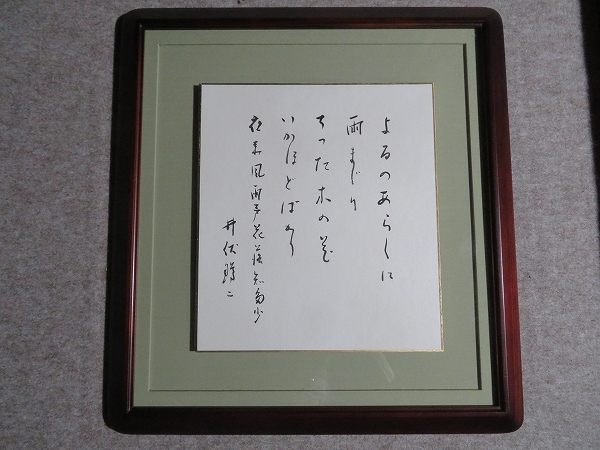 よるのあらしに
雨まじり
ちつた木の花
いかほどばかり
夜来風雨声花落知多少
井伏鱒二